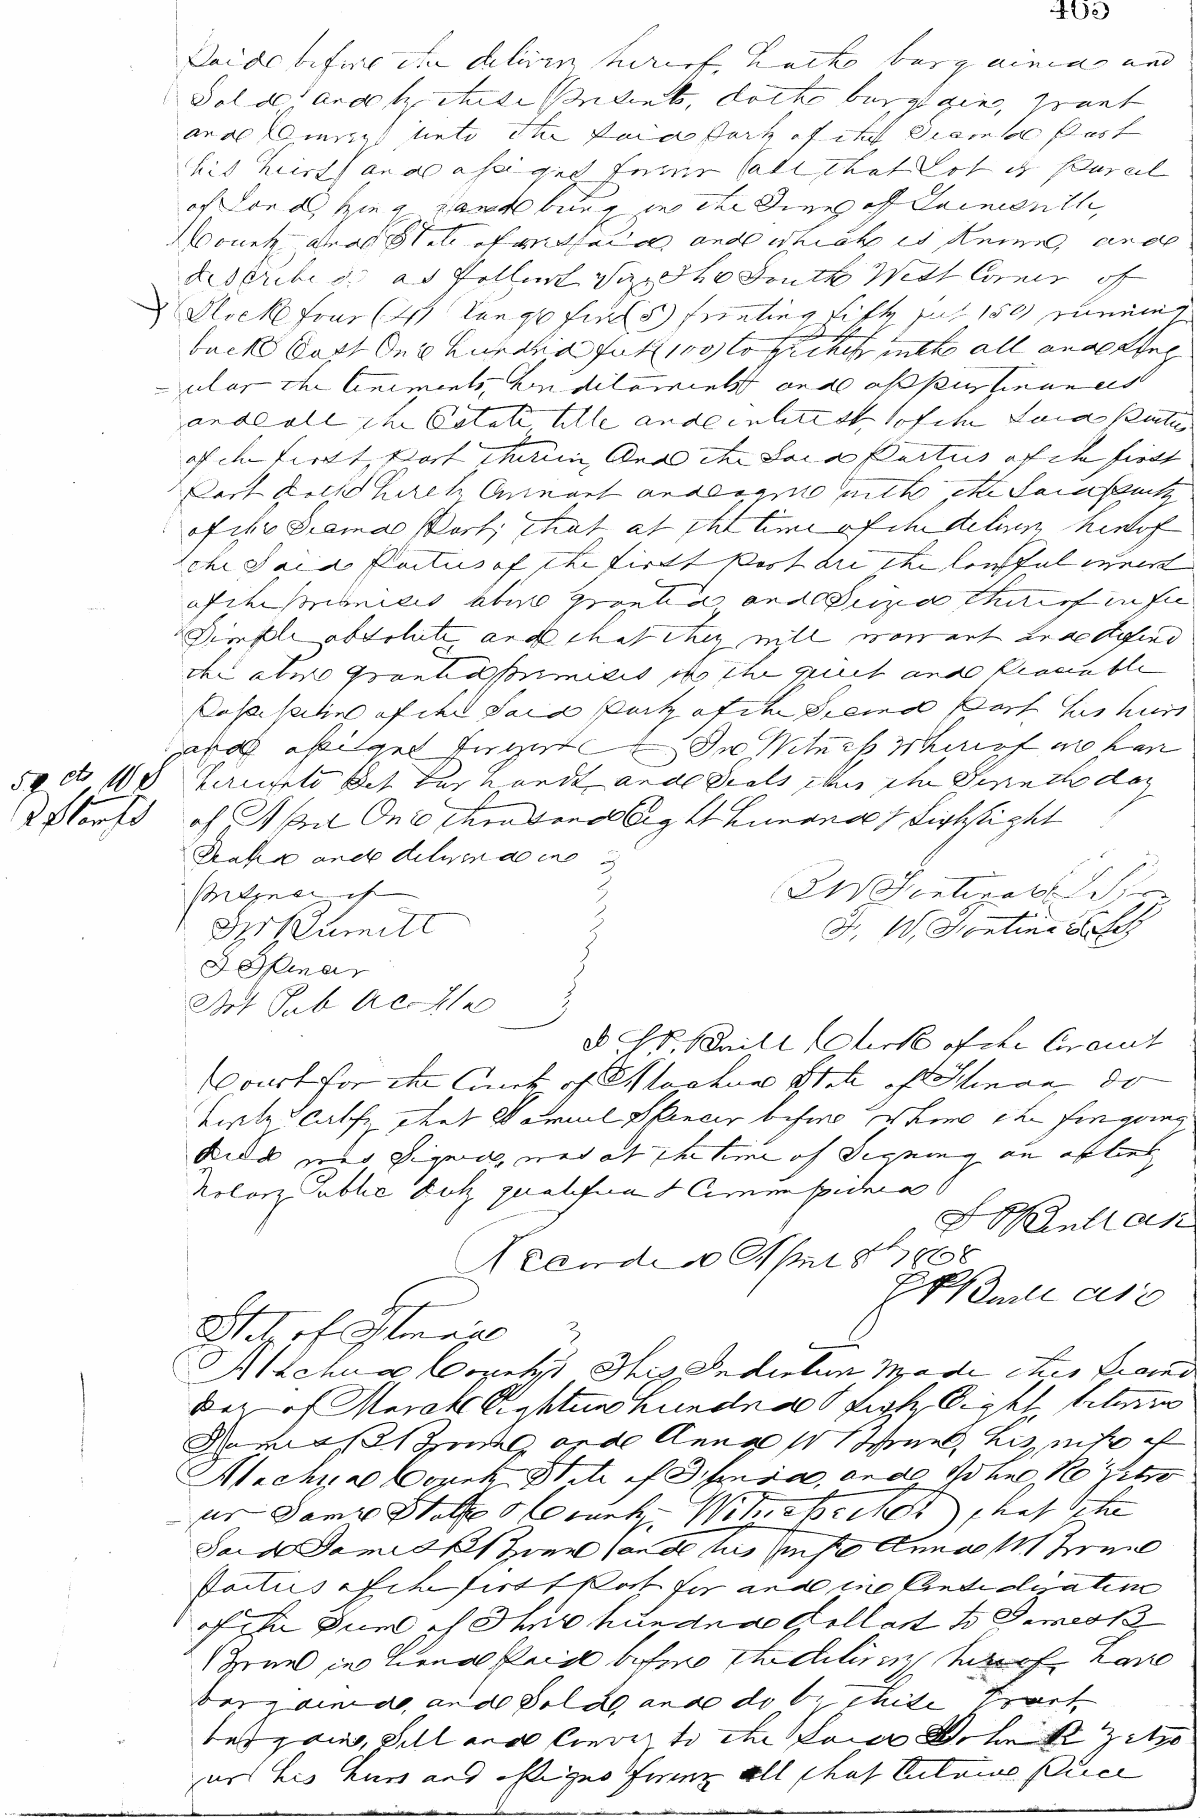 465
Paid before the delivery hereof, hath bargained and
Sold, and by these Presents, doth bargain, grant
and Convey unto the Said Party of the Second Part
his heirs and assigns forever all that Lot or Parcel
of Land, lying and being in the Town of Gainesville,
County and State aforesaid, and which is Known and
described as follows Viz, The South West Corner of
Block four (4) range five (5) fronting fifty feet (50) running
back East One hundred feet (100) together with all and Sing
ular the tenements, hereditaments and appurtinances
and all the Estate title and interest, of the Said Parties
of the first Part therein, And the Said Parties of the first
Part doth hereby Covenant and agree with the Said party
of the Second Part, that at the time of the delivery hereof
the Said Parties of the first Part are the lawful owners
of the premises above granted and Seized thereof in fee
Simple absolute and that they will warrant and defend
the above granted premises in the quiet and Peaceable
Possession of the Said Party of the Second Part his heirs
and assigns forever In Witness Whereof we have
50 cts
hereunto Set our hands and Seals this the Seventh day
2 Stamps
of April One thousand Eight hundred & Sixty Eight
Sealed and delivered in
presence of
F. W.
Burnett
S Spencer
Not Pub A C Fla
I Clerk of the Circuit
Court for the County of Alachua State of Florida do
hereby Certify that Samuel Spencer before Whom the foregoing
deed was Signed, was at the time of Signing an acting
Notary Public duly qualified & Commissioned
Recorded April 8th 1868
State of Florida
Alachua County This Indenture Made this Second
day of March Eighteen hundred & Sixty Eight, between
James B Brown and Anna W Brown, his wife of
Alachua County State of Florida, and John R Zetro
ur Same State & County, Witnesseth that the
Said James B Brown and his wife Anna W Brown
Parties of the first Part for and in Consideration
of the Sum of Three hundred dollars to James B
Brown in hand Paid before the delivery hereof have
bargained, and Sold, and do by these Grant,
bargain, Sell and Convey to the Said John R Zetro
ur his heirs and assigns forever all that Certain Piece